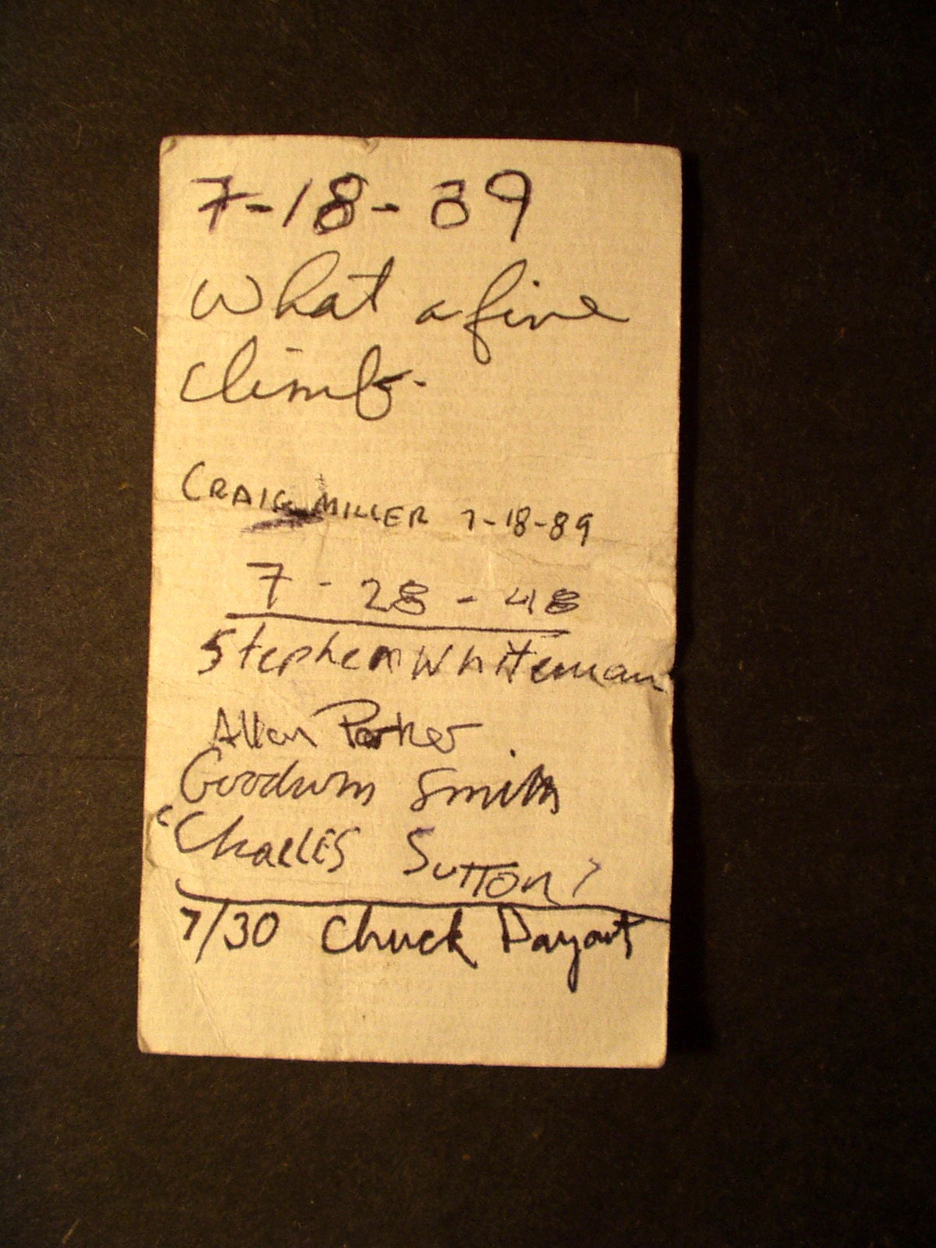 7-18-89
What a fine
climb.
CRAIG MILLER 7-18-89
7-28-48
Stephen Whiteman
Allen Parker
Goodwin Smith
"Charles Sutton"
7/30 Chuck